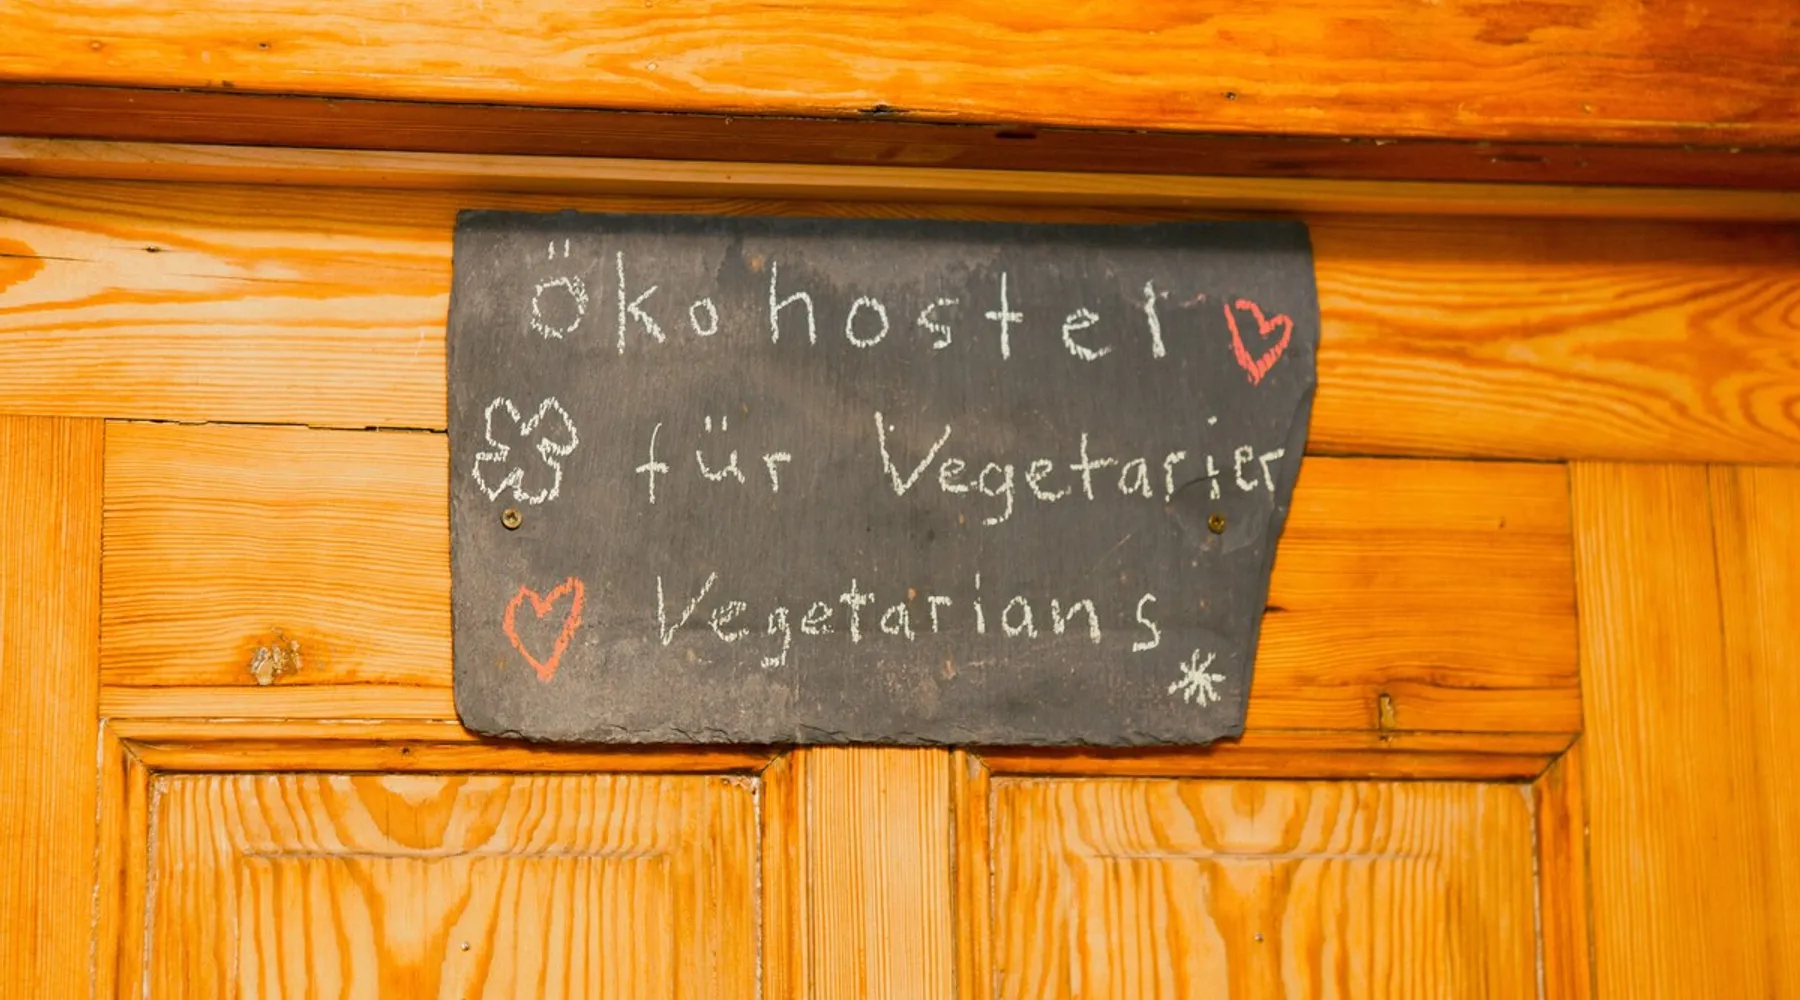 Ökohostel
für Vegetarier
Vegetarians